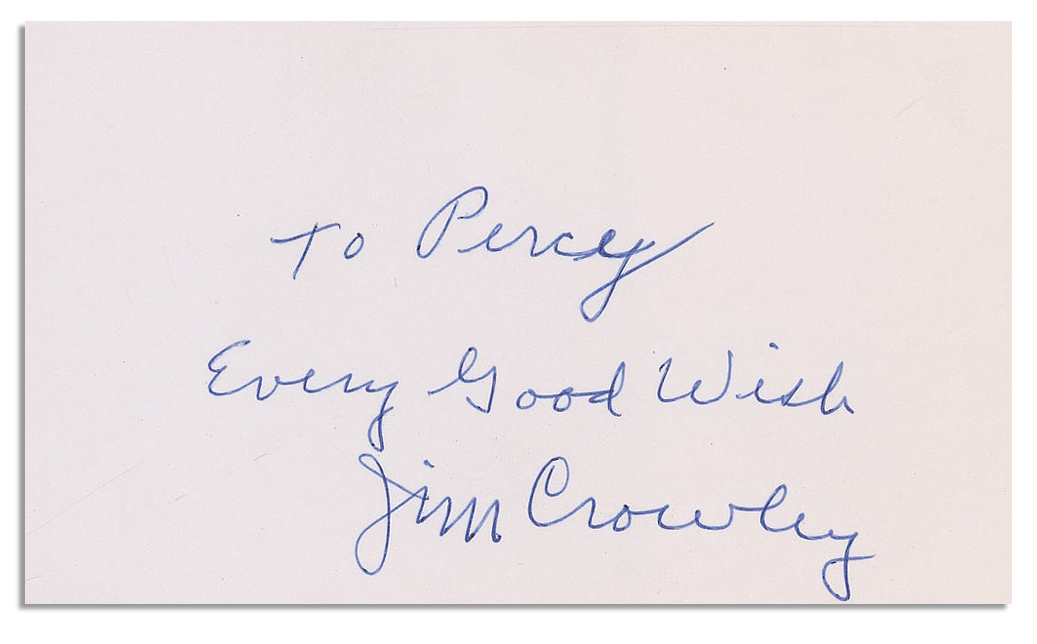 To Percy
Every Good Wish
Jim Crowley